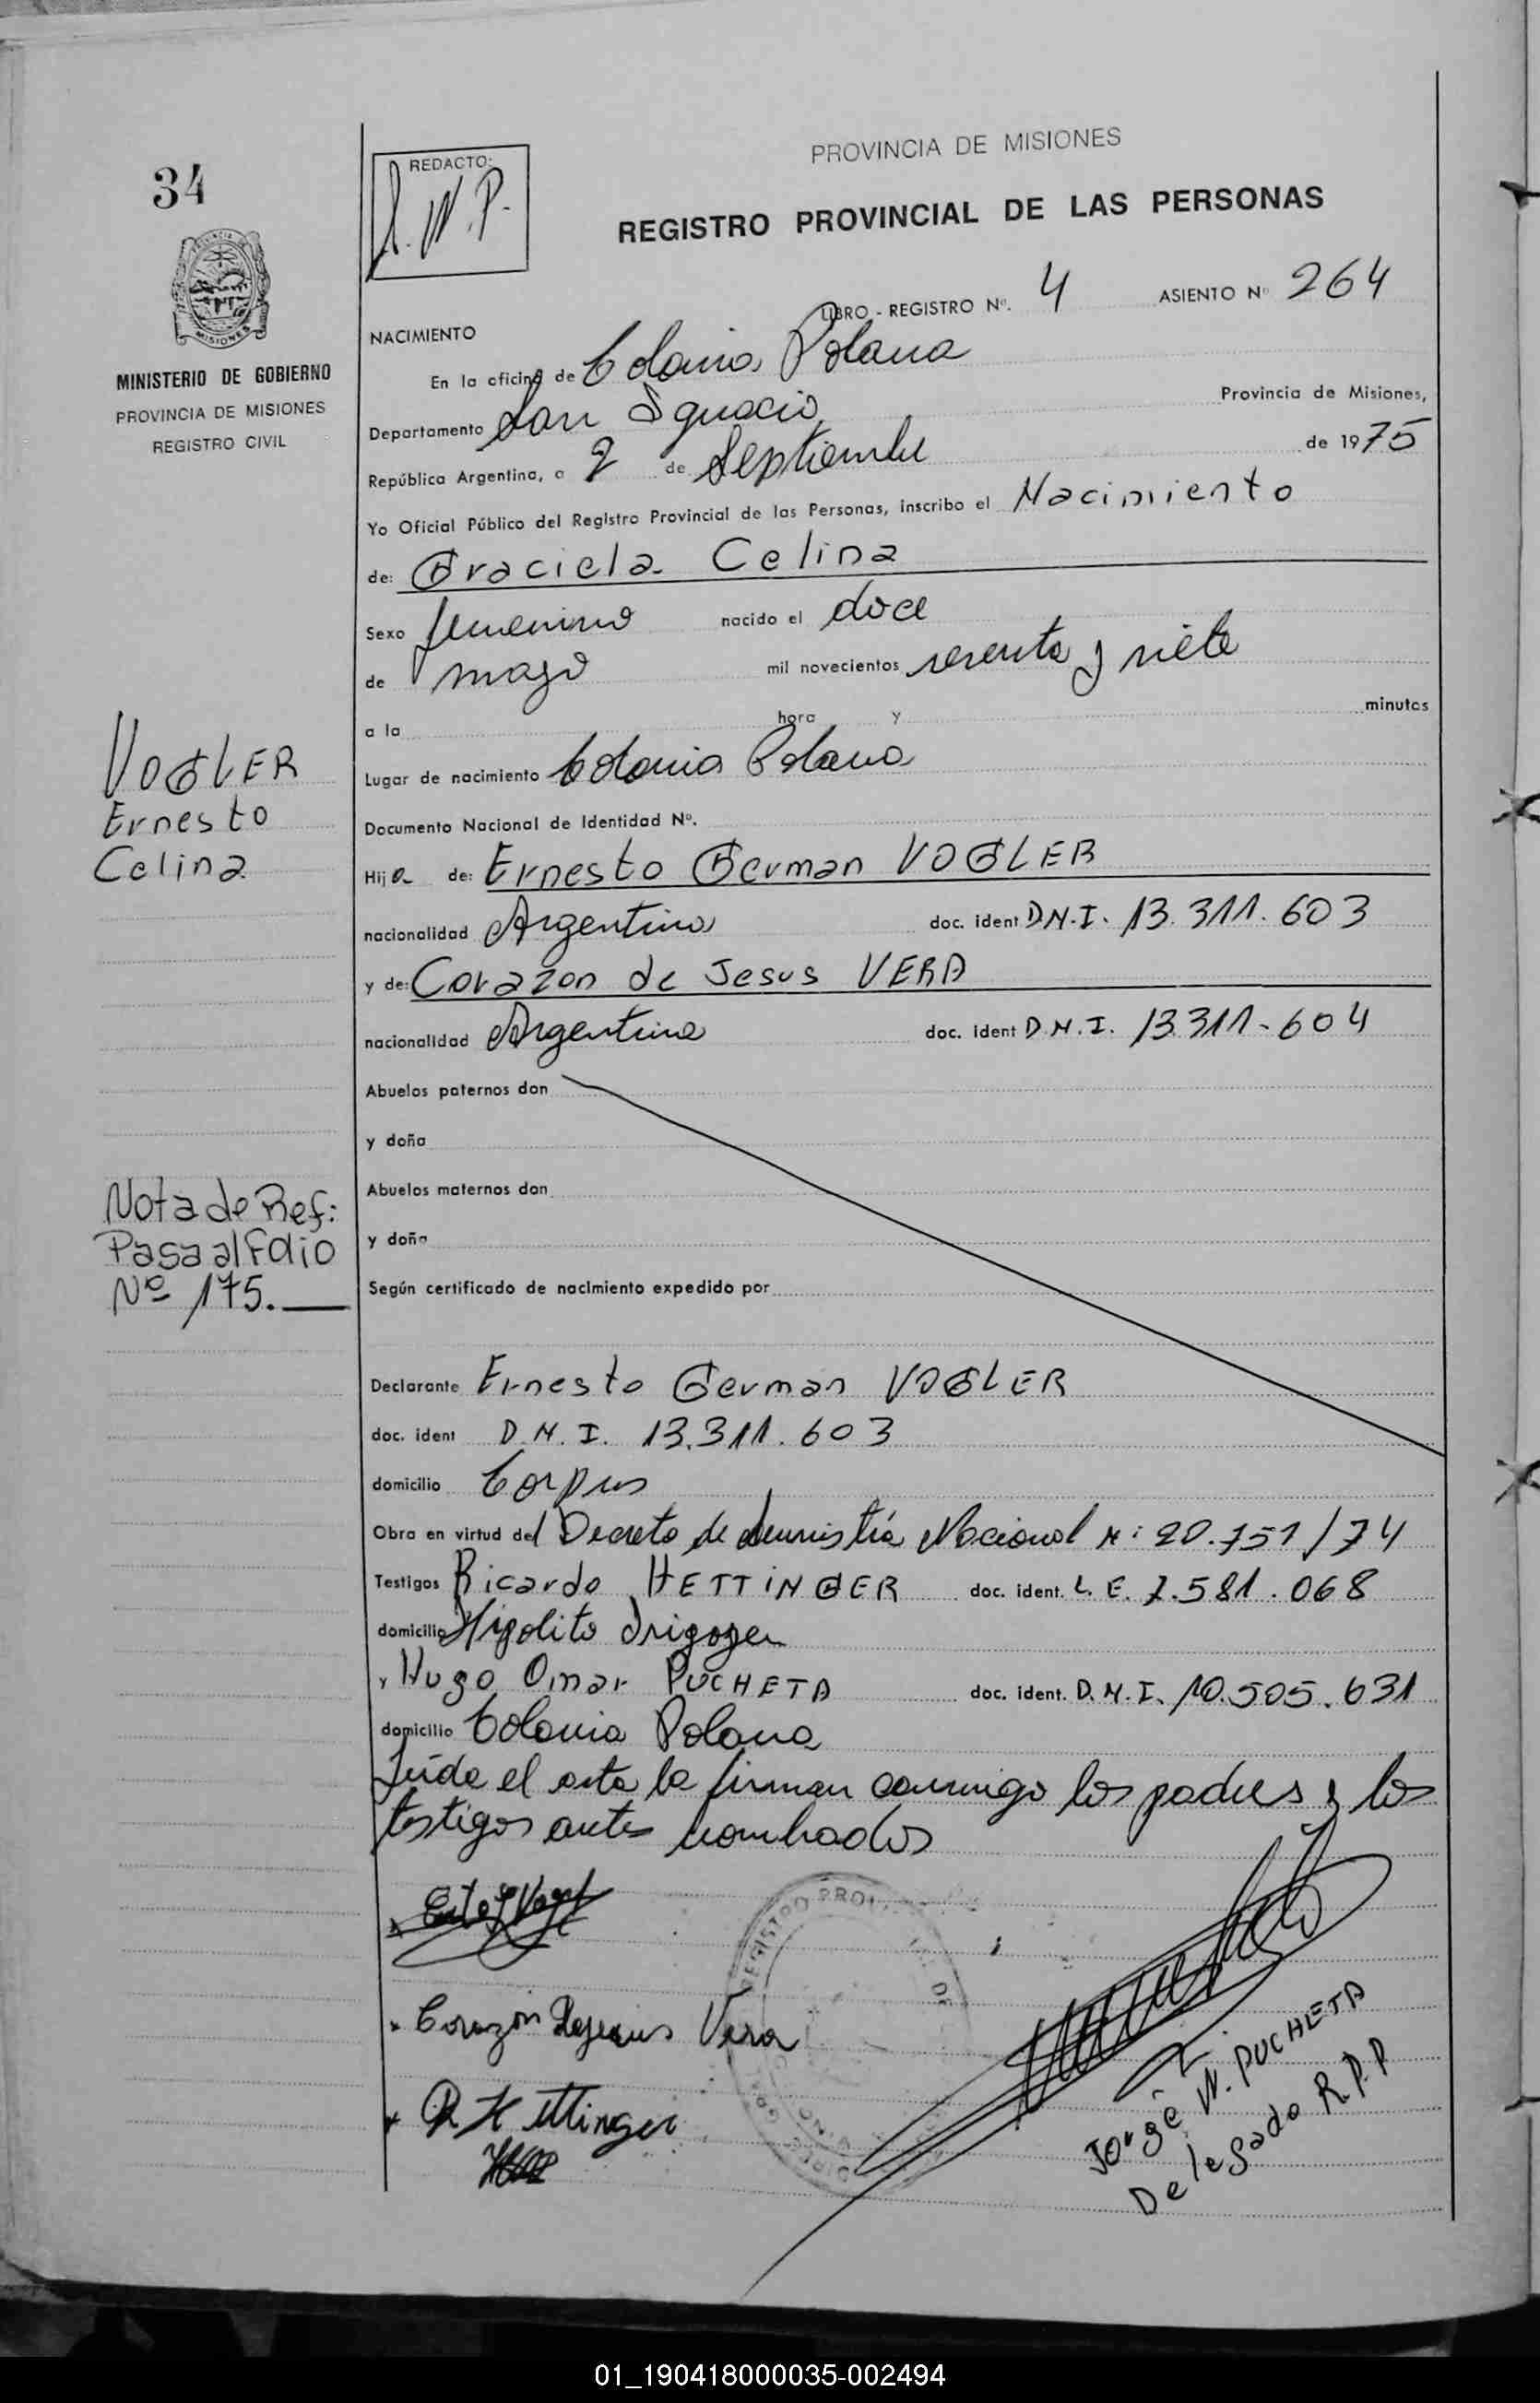 34
REDACTO:
J. W. P.
PROVINCIA DE MISIONES
REGISTRO PROVINCIAL DE LAS PERSONAS
LIBRO - REGISTRO Nº. 4 ASIENTO Nº 264
PROVINCIA DE
MISIONES
MINISTERIO DE GOBIERNO
PROVINCIA DE MISIONES
REGISTRO CIVIL
NACIMIENTO
En la oficina de Colonia Polana
Departamento San Ignacio Provincia de Misiones,
República Argentina, a 2 de Septiembre de 1975
Yo Oficial Público del Registro Provincial de las Personas, inscribo el Nacimiento
de: Graciela Celina
Sexo femenino nacido el doce
de mayo mil novecientos sesenta y siete
a la hora y minutos
Lugar de nacimiento Colonia Polana
Documento Nacional de Identidad Nº.
VOGLER
Ernesto
Celina
Hija de: Ernesto German VOGLER
nacionalidad Argentino doc. ident D.N.I. 13.311.603
y de: Corazon de Jesus VERA
nacionalidad Argentina doc. ident D.N.I. 13.311-604
Abuelos paternos don
y doña
Abuelos maternos don
y doña
Según certificado de nacimiento expedido por
Nota de Ref:
Pasa al Folio
Nº 175.
Declarante Ernesto German VOGLER
doc. ident D.N.I. 13.311.603
domicilio Corpus
Obra en virtud del Decreto de Amnistía Nacional N: 20.751/74
Testigos Ricardo HETTINGER doc. ident. L.E. 7.581.068
domicilio Hipolito Irigoyen
y Hugo Omar PUCHETA doc. ident. D.N.I. 10.505.631
domicilio Colonia Polana
Leída el acta la firman conmigo los padres y los
testigos antes nombrados
REGISTRO PRO DE
Corazon Vera
R. Hettinger
Jorge W. PUCHETA
Delegado R.P.P
01_190418000035-002494